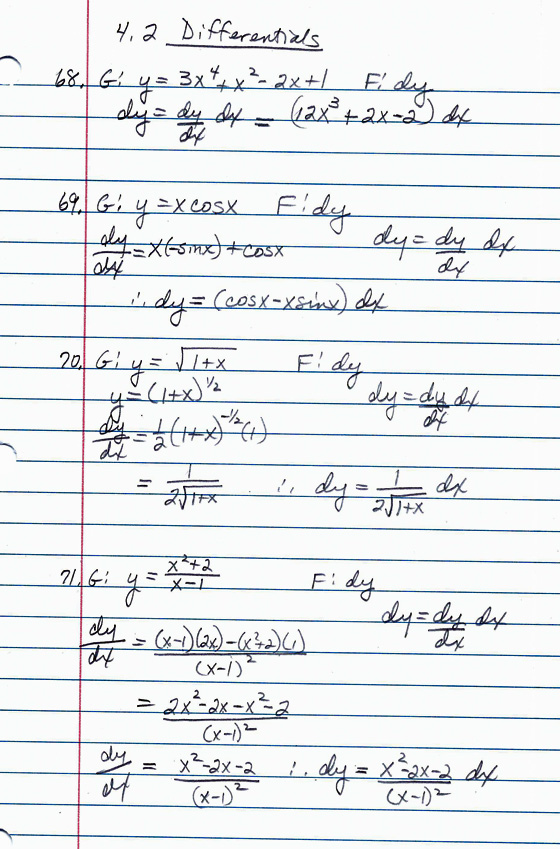 4.2 Differentials
68. G: y = 3x⁴+x²-2x+1 F: dy
dy = dy/dx dx = (12x³+2x-2) dx
69. G: y = x cosx F: dy
dy/dx = x(-sinx)+cosx dy = dy/dx dx
∴ dy = (cosx-xsinx) dx
70. G: y = √(1+x) F: dy
y = (1+x)^1/2 dy = dy/dx dx
dy/dx = 1/2 (1+x)^-1/2 (1)
= 1/(2√(1+x)) ∴ dy = 1/(2√(1+x)) dx
71. G: y = (x²+2)/(x-1) F: dy
dy = dy/dx dx
dy/dx = ((x-1)(2x)-(x²+2)(1))/(x-1)²
= (2x²-2x-x²-2)/(x-1)²
dy/dx = (x²-2x-2)/(x-1)² ∴ dy = (x²-2x-2)/(x-1)² dx